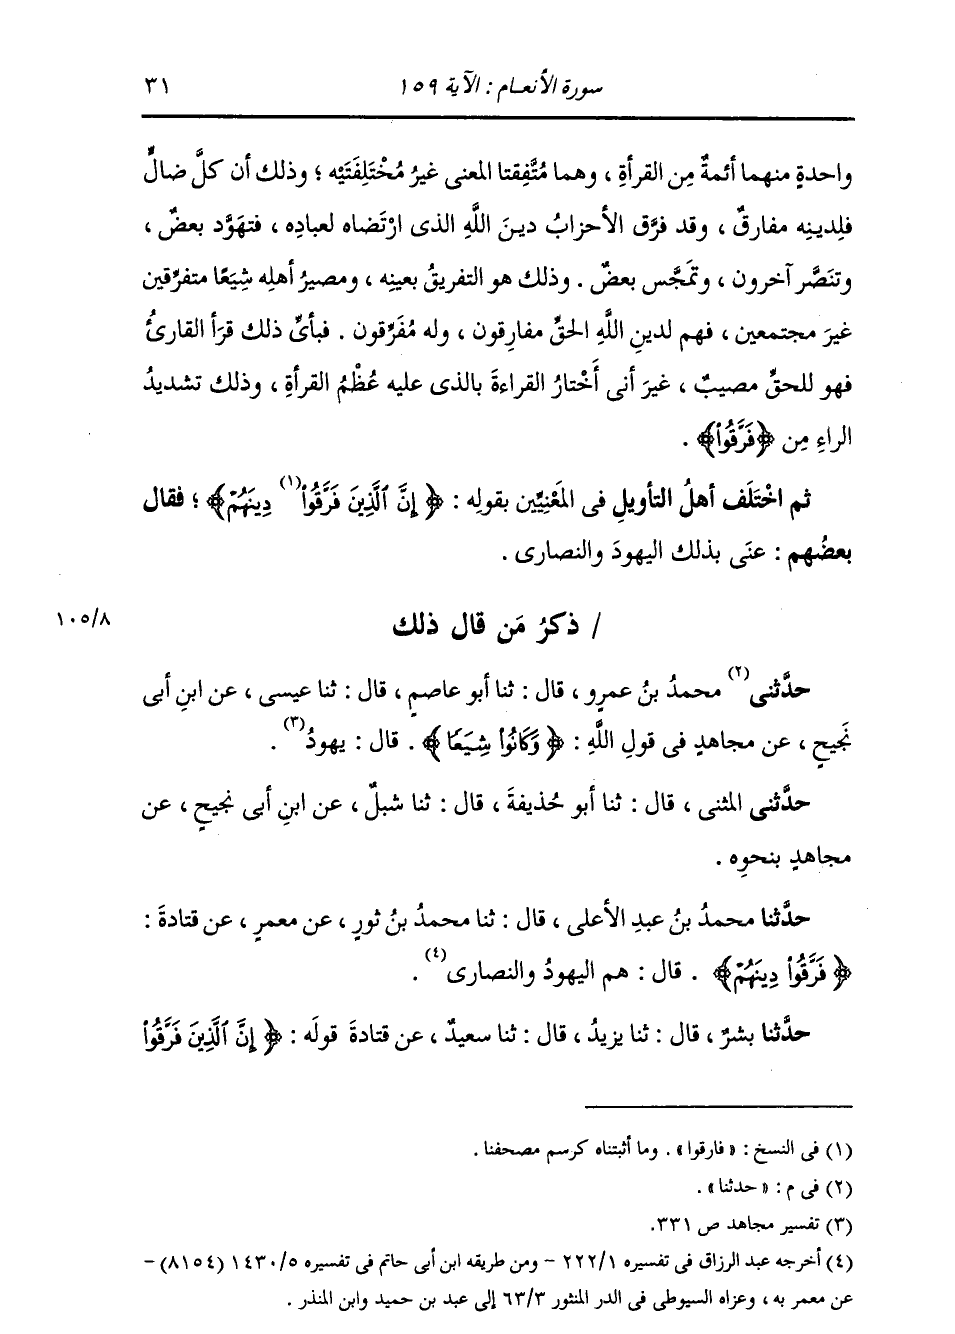 سورة الأنعام : الآية ١٥٩
٣١
واحدةٍ منهما أئمةٌ مِن القرأةِ ، وهما مُتَّفِقتا المعنى غيرُ مُخْتَلِفَتَيْه ؛ وذلك أن كلَّ ضالٍّ
فلِدينِه مفارقٌ ، وقد فرَّق الأحزابُ دينَ اللَّهِ الذى ارْتَضاه لعبادِه ، فتهَوَّد بعضٌ ،
وتنَصَّر آخرون ، وتمَجَّس بعضٌ . وذلك هو التفريقُ بعينِه ، ومصيرُ أهلِه شِيَعًا متفرِّقين
غيرَ مجتمعين ، فهم لدينِ اللَّهِ الحقِّ مفارِقون ، وله مُفَرِّقون . فبأىِّ ذلك قرَأ القارئُ
فهو للحقِّ مصيبٌ ، غيرَ أنى أَخْتارُ القراءةَ بالذى عليه عُظْمُ القرأةِ ، وذلك تشديدُ
الراءِ مِن ﴿فَرَّقُواْ﴾ .
ثم اخْتَلَف أهلُ التأويلِ فى المَعْنِيِّين بقولِه : ﴿إِنَّ ٱلَّذِينَ فَرَّقُواْ(١) دِينَهُمْ﴾ ؛ فقال
بعضُهم : عنَى بذلك اليهودَ والنصارى .
/ ذكرُ مَن قال ذلك
١٠٥/٨
حدَّثنى(٢) محمدُ بنُ عمرٍو ، قال : ثنا أبو عاصمٍ ، قال : ثنا عيسى ، عن ابنِ أبى
نَجيحٍ ، عن مجاهدٍ فى قولِ اللَّهِ : ﴿وَكَانُواْ شِيَعًا﴾ . قال : يهودُ(٣) .
حدَّثنى المثنى ، قال : ثنا أبو حُذيفةَ ، قال : ثنا شبلٌ ، عن ابنِ أبى نجيحٍ ، عن
مجاهدٍ بنحوِه .
حدَّثنا محمدُ بنُ عبدِ الأعلى ، قال : ثنا محمدُ بنُ ثورٍ ، عن معمرٍ ، عن قتادةَ :
﴿فَرَّقُواْ دِينَهُمْ﴾ . قال : هم اليهودُ والنصارى(٤) .
حدَّثنا بشرٌ ، قال : ثنا يزيدُ ، قال : ثنا سعيدٌ ، عن قتادةَ قولَه : ﴿إِنَّ ٱلَّذِينَ فَرَّقُواْ
(١) فى النسخ : « فارقوا » . وما أثبتناه كرسم مصحفنا .
(٢) فى م : « حدثنا » .
(٣) تفسير مجاهد ص ٣٣١.
(٤) أخرجه عبد الرزاق فى تفسيره ٢٢٢/١ - ومن طريقه ابن أبى حاتم فى تفسيره ١٤٣٠/٥ (٨١٥٤) -
عن معمر به ، وعزاه السيوطى فى الدر المنثور ٦٣/٣ إلى عبد بن حميد وابن المنذر .